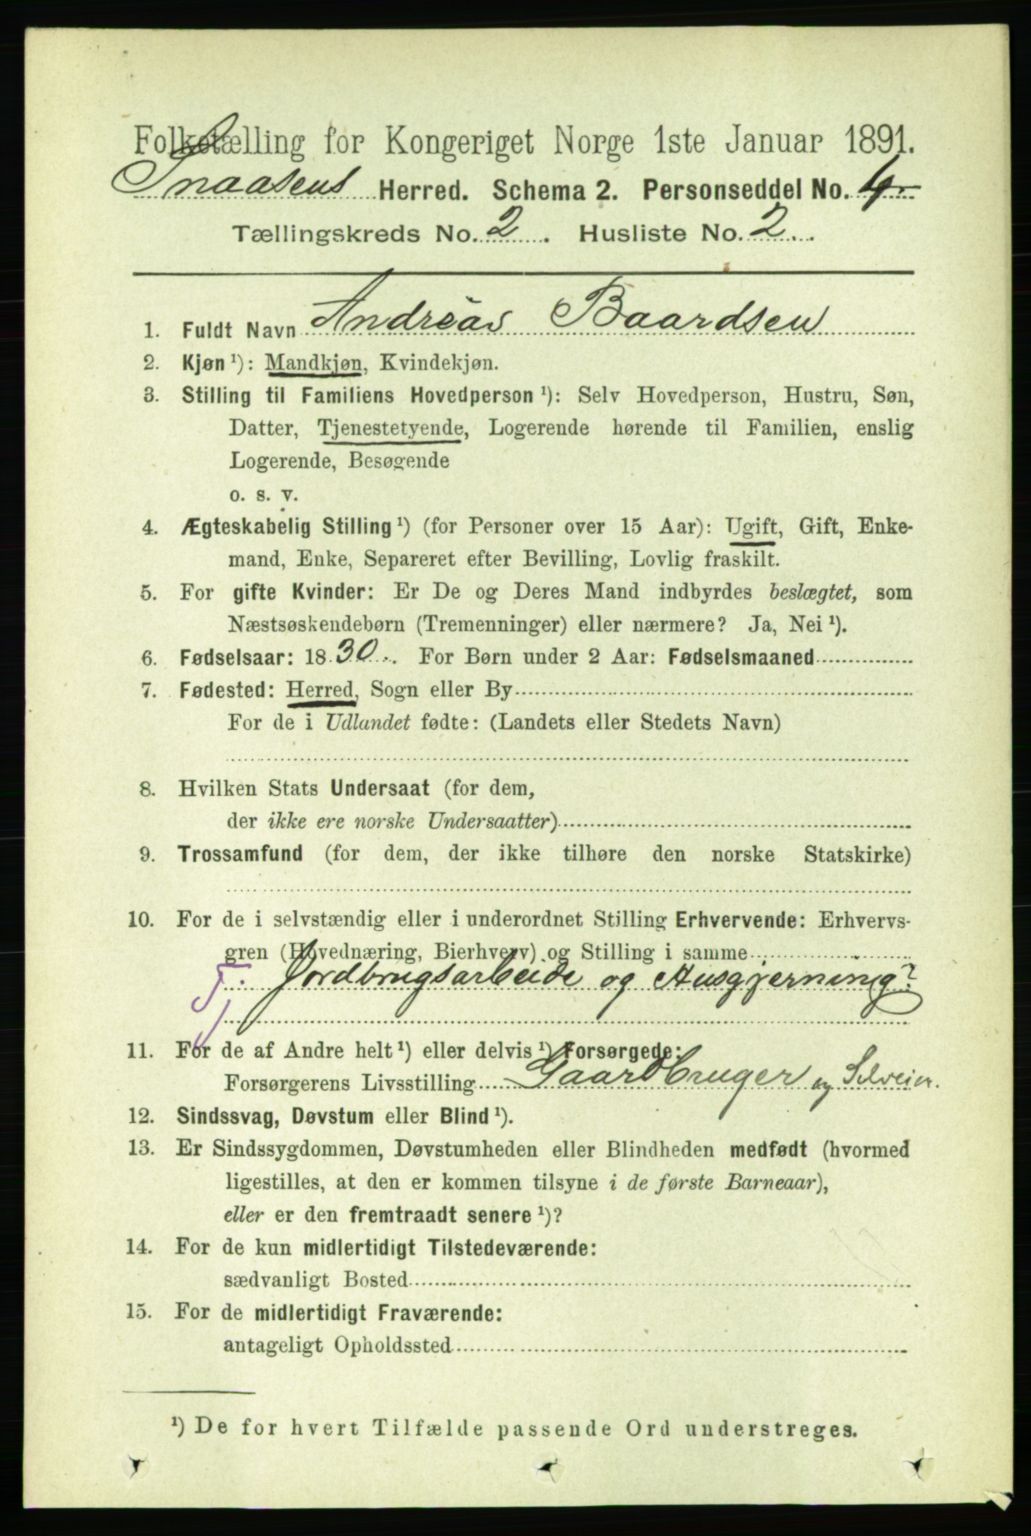 Folketælling for Kongeriget Norge 1ste Januar 1891.
Snaasens Herred. Schema 2. Personseddel No. 4
Tællingskreds No. 2. Husliste No. 2.
1. Fuldt Navn Andreas Baardsen
2. Kjøn ¹): Mandkjøn, Kvindekjøn.
3. Stilling til Familiens Hovedperson ¹): Selv Hovedperson, Hustru, Søn,
Datter, Tjenestetyende, Logerende hørende til Familien, enslig
Logerende, Besøgende
o. s. v.
4. Ægteskabelig Stilling ¹) (for Personer over 15 Aar): Ugift, Gift, Enke-
mand, Enke, Separeret efter Bevilling, Lovlig fraskilt.
5. For gifte Kvinder: Er De og Deres Mand indbyrdes beslægtet, som
Næstsøskendebørn (Tremenninger) eller nærmere? Ja, Nei ¹).
6. Fødselsaar: 1830. For Børn under 2 Aar: Fødselsmaaned
7. Fødested: Herred, Sogn eller By
For de i Udlandet fødte: (Landets eller Stedets Navn)
8. Hvilken Stats Undersaat (for dem,
der ikke ere norske Undersaatter)
9. Trossamfund (for dem, der ikke tilhøre den norske Statskirke)
10. For de i selvstændig eller i underordnet Stilling Erhvervende: Erhvervs-
gren (Hovednæring, Bierhverv) og Stilling i samme
Jordbrugsarbeide og Husgjerning?
11. For de af Andre helt ¹) eller delvis ¹) Forsørgede:
Forsørgerens Livsstilling Gaardbruger og Selveier.
12. Sindssvag, Døvstum eller Blind ¹).
13. Er Sindssygdommen, Døvstumheden eller Blindheden medfødt (hvormed
ligestilles, at den er kommen tilsyne i de første Barneaar),
eller er den fremtraadt senere ¹)?
14. For de kun midlertidigt Tilstedeværende:
sædvanligt Bosted
15. For de midlertidigt Fraværende:
antageligt Opholdssted
¹) De for hvert Tilfælde passende Ord understreges.